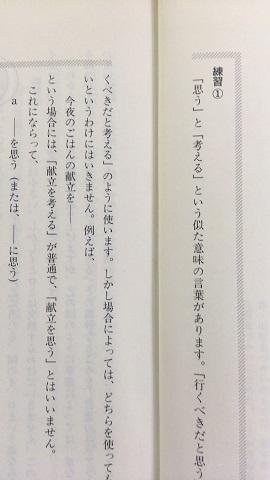 練習①
「思う」と「考える」という似た意味の言葉があります。「行くべきだと思う
くべきだと考える」のように使います。しかし場合によっては、どちらを使って
いというわけにはいきません。例えば、
今夜のごはんの献立を――
という場合には、「献立を考える」が普通で、「献立を思う」とはいいません。
これにならって、
a ――を思う（または、――に思う）